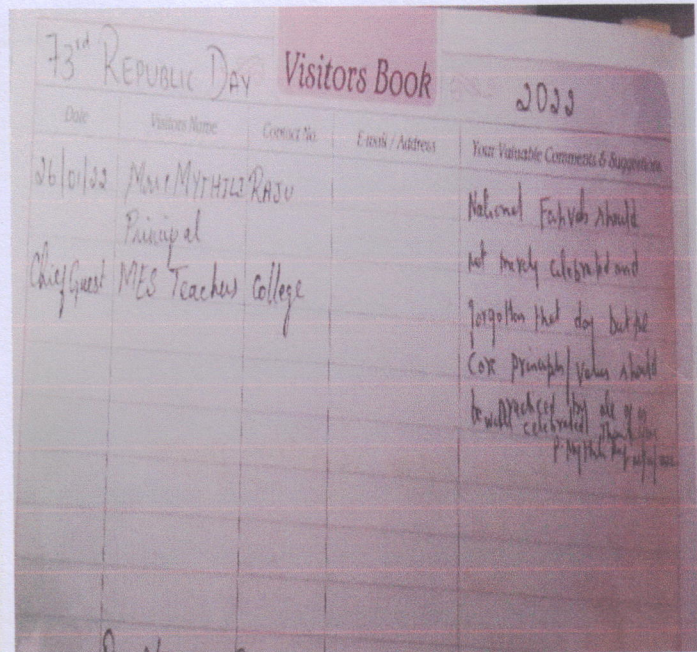 73rd REPUBLIC DAY
Visitors Book
2022
Date Visitors Name Contact No. Email / Address Your Valuable Comments & Suggestions
26/01/22 MYTHILI RAJU
Principal
Chief Guest MES Teachers College
National should
not merely celebrated and
forgotten that day but the
Core principles/values should
be practiced by all of us
well celebrated